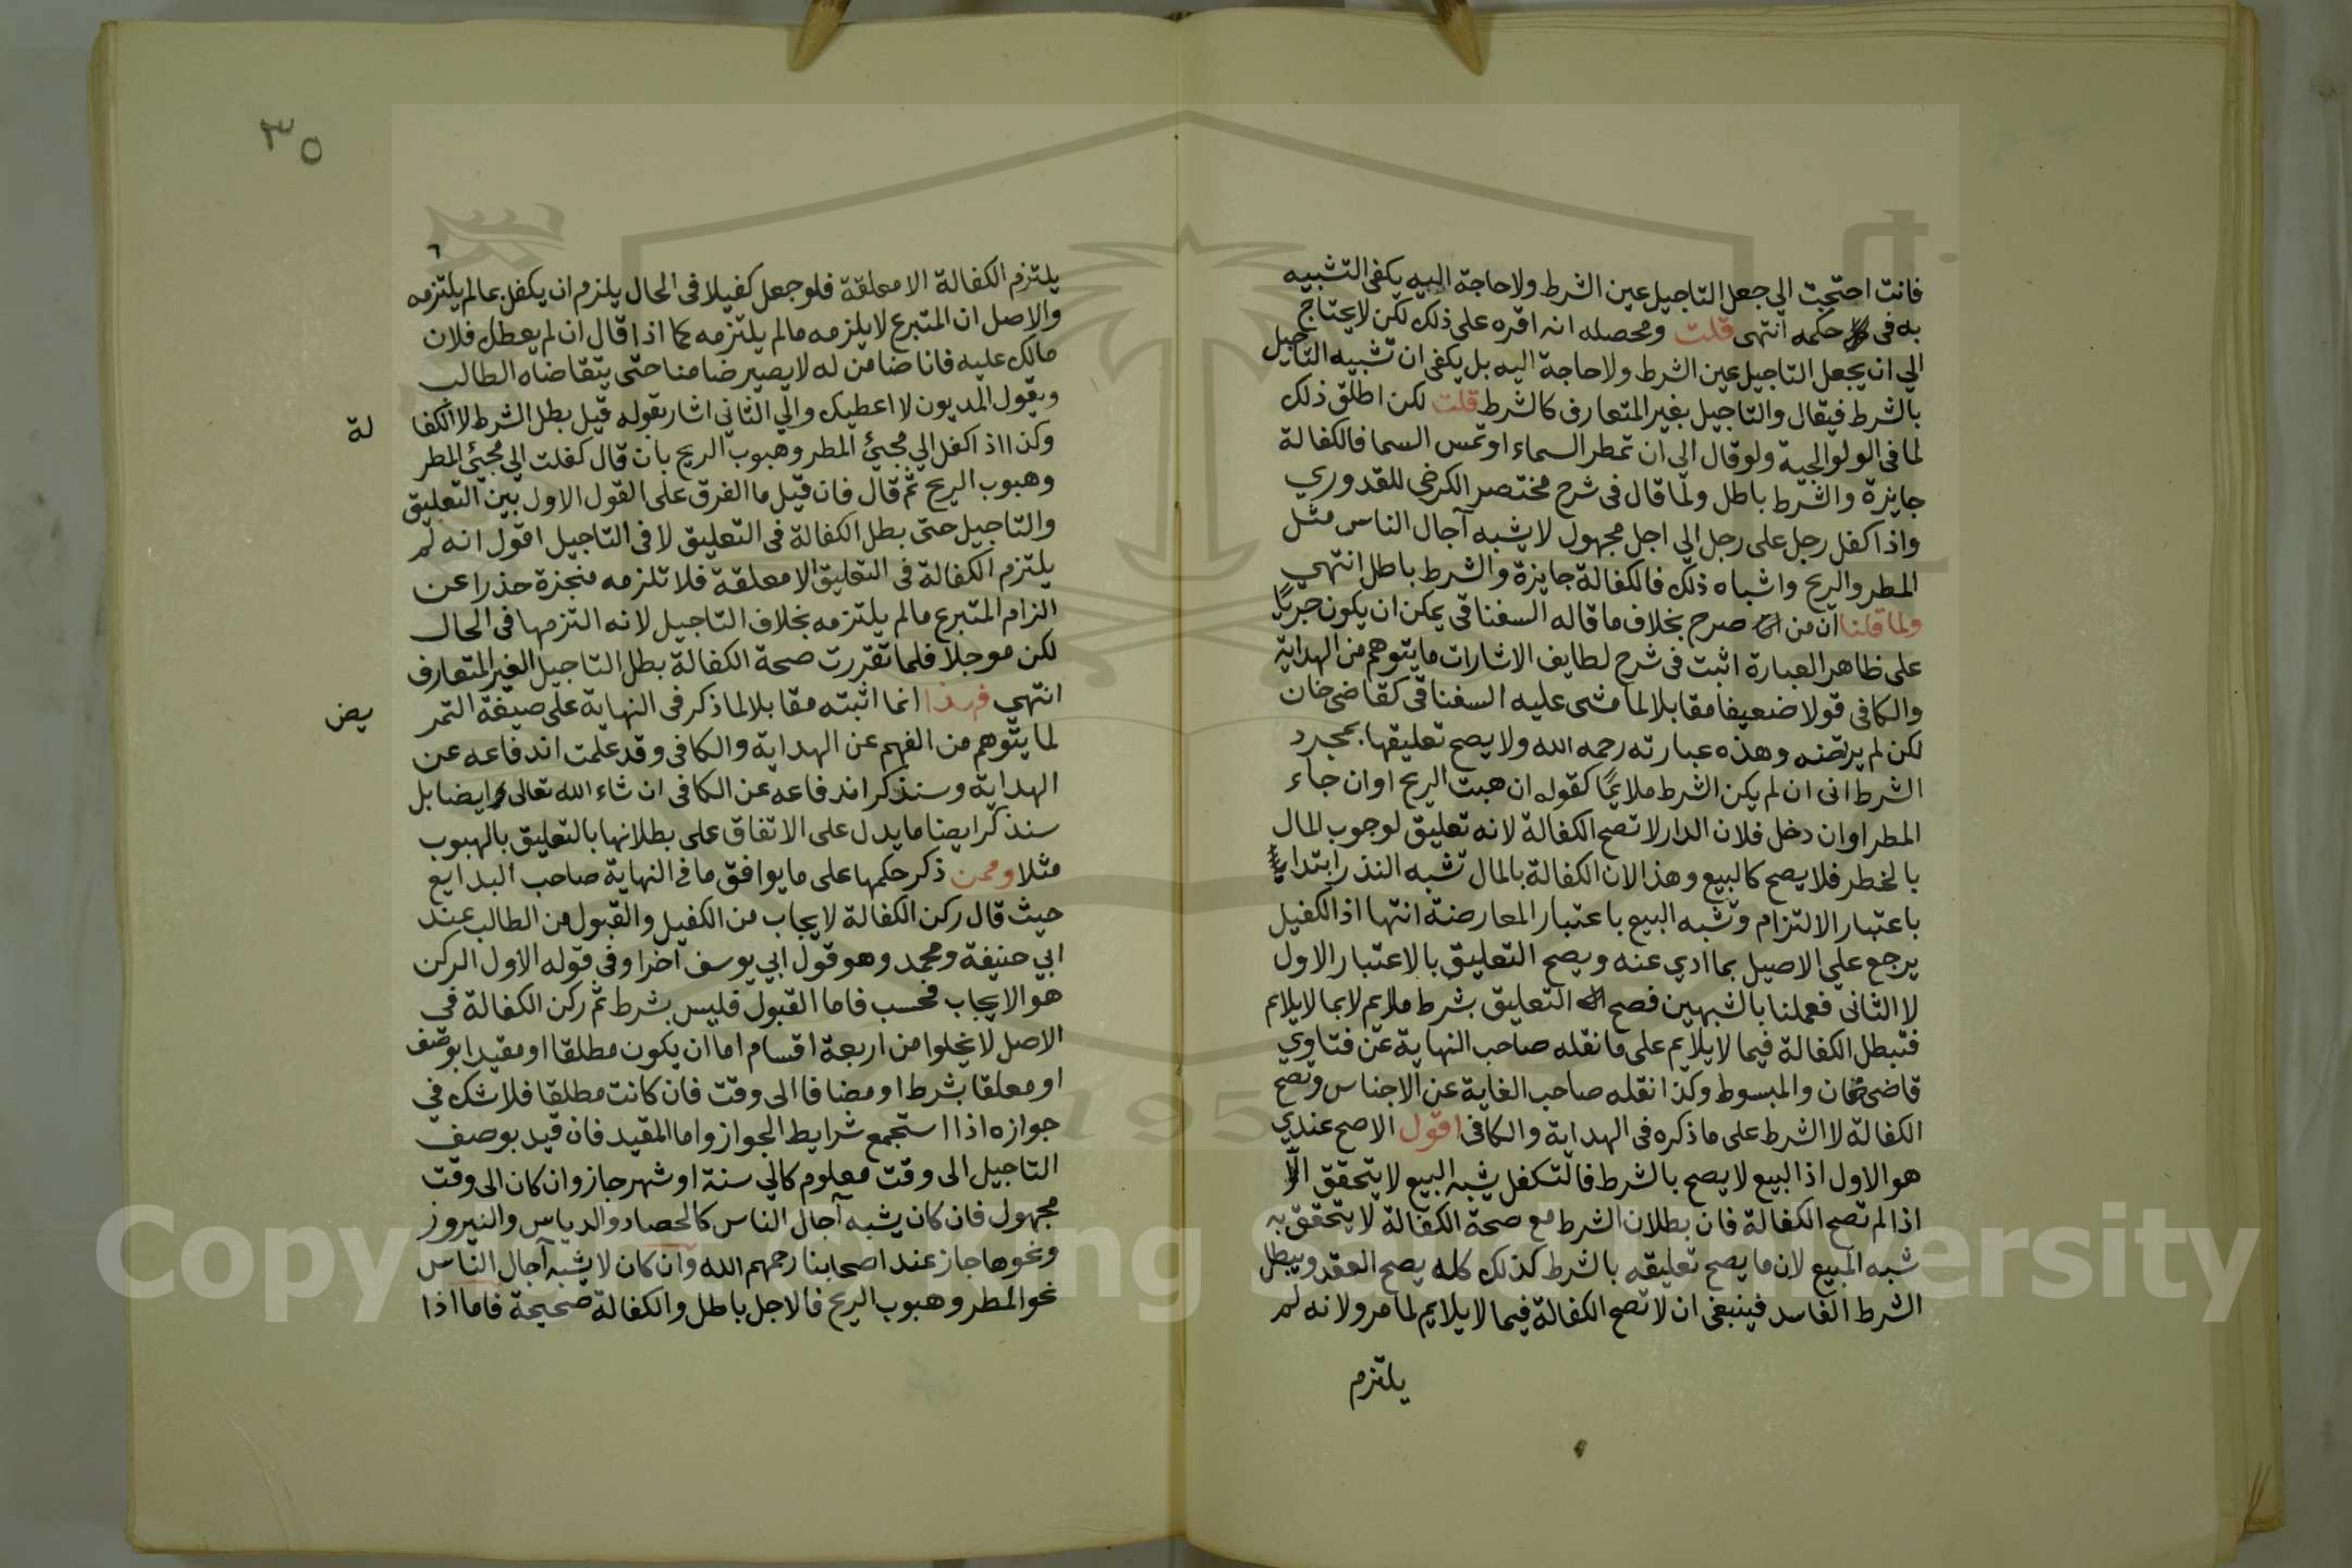 فانت احتجت الي جعل التاجيل عين الشرط ولا حاجة اليه يكفي التشبيه
به في حكمه انتهى قلت ومحصله انه اقره على ذلك لكن لا يحتاج
الي ان يجعل التاجيل عين الشرط ولا حاجة اليه بل يكفى ان تشبيه التاجيل
بالشرط فيقال والتاجيل بغير المتعارف كالشرط قلت لكن اطلق ذلك
لما في الولوالجية ولو قال الى ان تمطر السماء او تمس السما فالكفالة
جايزة والشرط باطل ولما قال فى شرح مختصر الكرخي للقدوري
واذا كفل رجل على رجل الي اجل مجهول لا يشبه آجال الناس مثل
المطر والريح واشباه ذلك فالكفالة جايزة والشرط باطل انتهي
ولما قلنا ان من صرح بخلاف ما قاله السغناقى يمكن ان يكون جريًا
على ظاهر العبارة اثبت فى شرح لطايف الاشارات ما يتوهم من الهداية
والكافي قولا ضعيفا مقابلا لما مشى عليه السغناقى كقاضى خان
لكن لم يرتضه وهذه عبارته رحمه الله ولا يصح تعليقها بمجرد
الشرط انى ان لم يكن الشرط ملايمًا كقوله ان هبت الريح او ان جاء
المطر او ان دخل فلان الدار لا تصح الكفالة لانه تعليق لوجوب المال
بالخطر فلا يصح كالبيع وهذا لان الكفالة بالمال تشبه النذر ابتدا
باعتبار الالتزام وتشبه البيع باعتبار المعارضة انتها اذ الكفيل
يرجع علي الاصيل بما ادي عنه ويصح التعليق بالاعتبار الاول
لا الثانى فعملنا بالشبهين فصح التعليق بشرط ملايم لا بما لا يلايم
فتبطل الكفالة فيما لا يلايم على ما نقله صاحب النهاية عن فتاوي
قاضى خان والمبسوط وكذا نقله صاحب الغاية عن الاجناس وتصح
الكفالة لا الشرط على ما ذكره فى الهداية والكافى اقول الاصح عندي
هو الاول اذ البيع لا يصح بالشرط فالتكفل يشبه البيع لا يتحقق الا
اذا لم تصح الكفالة فان بطلان الشرط مع صحة الكفالة لا يتحقق به
شبه المبيع لان ما يصح تعليقه بالشرط كذلك كله يصح العقد ويبطل
الشرط الفاسد فينبغى ان لا تصح الكفالة فيما لا يلايم لما مر ولانه لم
يلتزم
٣٥
يلتزم الكفالة الا معلقة فلو جعل كفيلا فى الحال يلزم ان يكفل بما لم يلتزمه
والاصل ان المتبرع لا يلزمه ما لم يلتزمه كما اذا قال ان لم يعطل فلان
مالك عليه فانا ضامن له لا يصير ضامنا حتى يتقاضاه الطالب
ويقول المديون لا اعطيك والي الثاني اشار بقوله قيل بطل الشرط لا الكفا
لة
وكذا اذ اكفل الي مجيئ المطر وهبوب الريح بان قال كفلت الي مجيئ المطر
وهبوب الريح ثم قال فان قيل ما الفرق على القول الاول بين التعليق
والتاجيل حتى بطل الكفالة فى التعليق لا فى التاجيل اقول انه لم
يلتزم الكفالة فى التعليق الا معلقة فلا تلزمه منجزة حذرا عن
الزام المتبرع ما لم يلتزمه بخلاف التاجيل لانه التزمها فى الحال
لكن موجلا فلما تقررت صحة الكفالة بطل التاجيل الغير المتعارف
انتهي فهذا انما اثبته مقابلا لما ذكر فى النهاية على صيغة التمر
يض
لما يتوهم من الفهم عن الهداية والكافى وقد علمت اندفاعه عن
الهداية وسنذكر اندفاعه عن الكافى ان شاء الله تعالى ايضا بل
سنذكر ايضا ما يدل على الاتفاق على بطلانها بالتعليق بالهبوب
مثلا وممن ذكر حكمها على ما يوافق ما فى النهاية صاحب البدايع
حيث قال ركن الكفالة لايجاب من الكفيل والقبول من الطالب عند
ابي حنيفة ومحمد وهو قول ابي يوسف اخرا وفي قوله الاول الركن
هو الايجاب فحسب فاما القبول فليس بشرط ثم ركن الكفالة في
الاصل لا يخلوا من اربعة اقسام اما ان يكون مطلقا او مقيدا بوصف
او معلقا بشرط او مضافا الى وقت فان كانت مطلقا فلا شك في
جوازه اذا استجمع شرايط الجواز واما المقيد فان قيد بوصف
التاجيل الى وقت معلوم كالي سنة او شهر جاز وان كان الى وقت
مجهول فان كان يشبه آجال الناس كالحصاد والدياس والنيروز
ونحوها جاز عند اصحابنا رحمهم الله وان كان لا يشبه آجال الناس
نحو المطر وهبوب الريح فالاجل باطل والكفالة صحيحة فاما اذا
Copyright © King Saud University